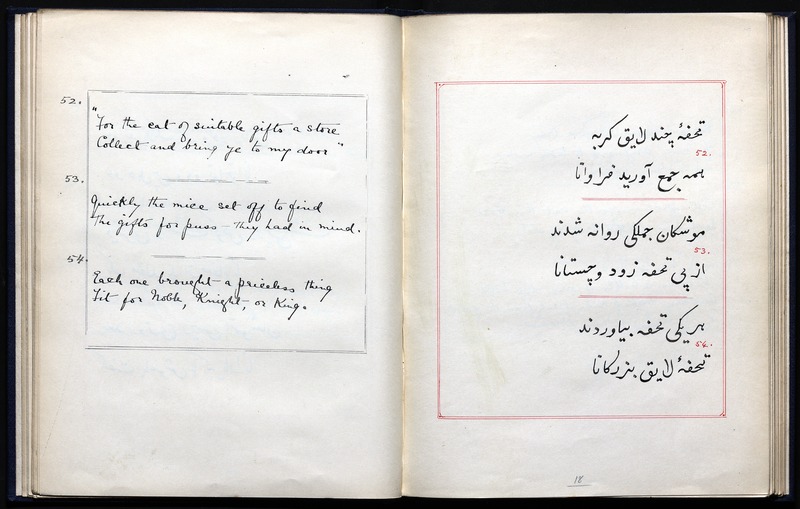 52.
"For the cat of suitable gifts a store
Collect and bring ye to my door"
53.
Quickly the mice set off to find
The gifts for puss they had in mind.
54.
Each one brought a priceless thing
Fit for Noble, Knight, or King.
تحفهٔ چند لایق گربه
52.
همه جمع آورید فراوانا
موشکان جملگی روانه شدند
53.
از پی تحفه زود و چستانا
هر یکی تحفه بیاوردند
54.
تحفهٔ لایق بزرگانا
18